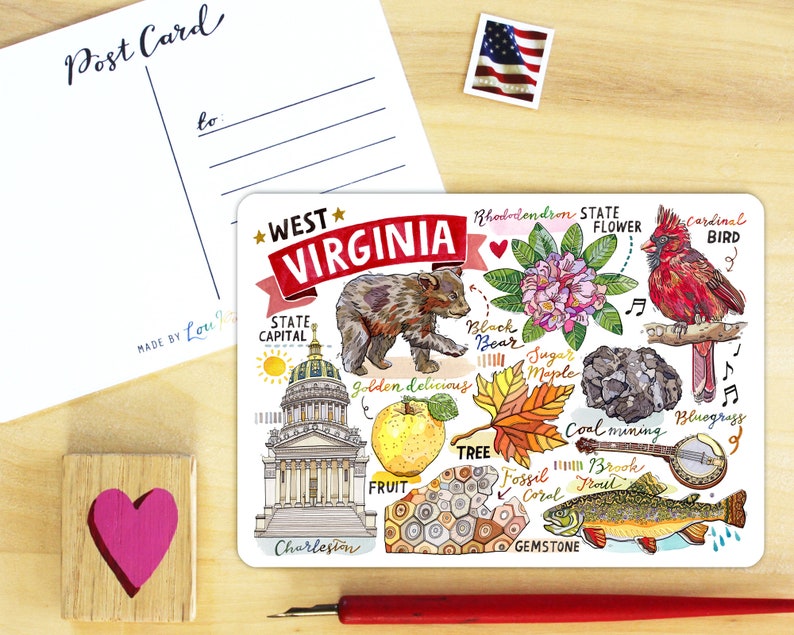 Post Card
to:
MADE BY Lou
WEST
VIRGINIA
Rhododendron STATE
FLOWER
Cardinal
BIRD
STATE
CAPITAL
Black
Bear
Sugar
Maple
golden delicious
Coal mining
Bluegrass
TREE
FRUIT
Fossil
Coral
Brook
Trout
Charleston
GEMSTONE